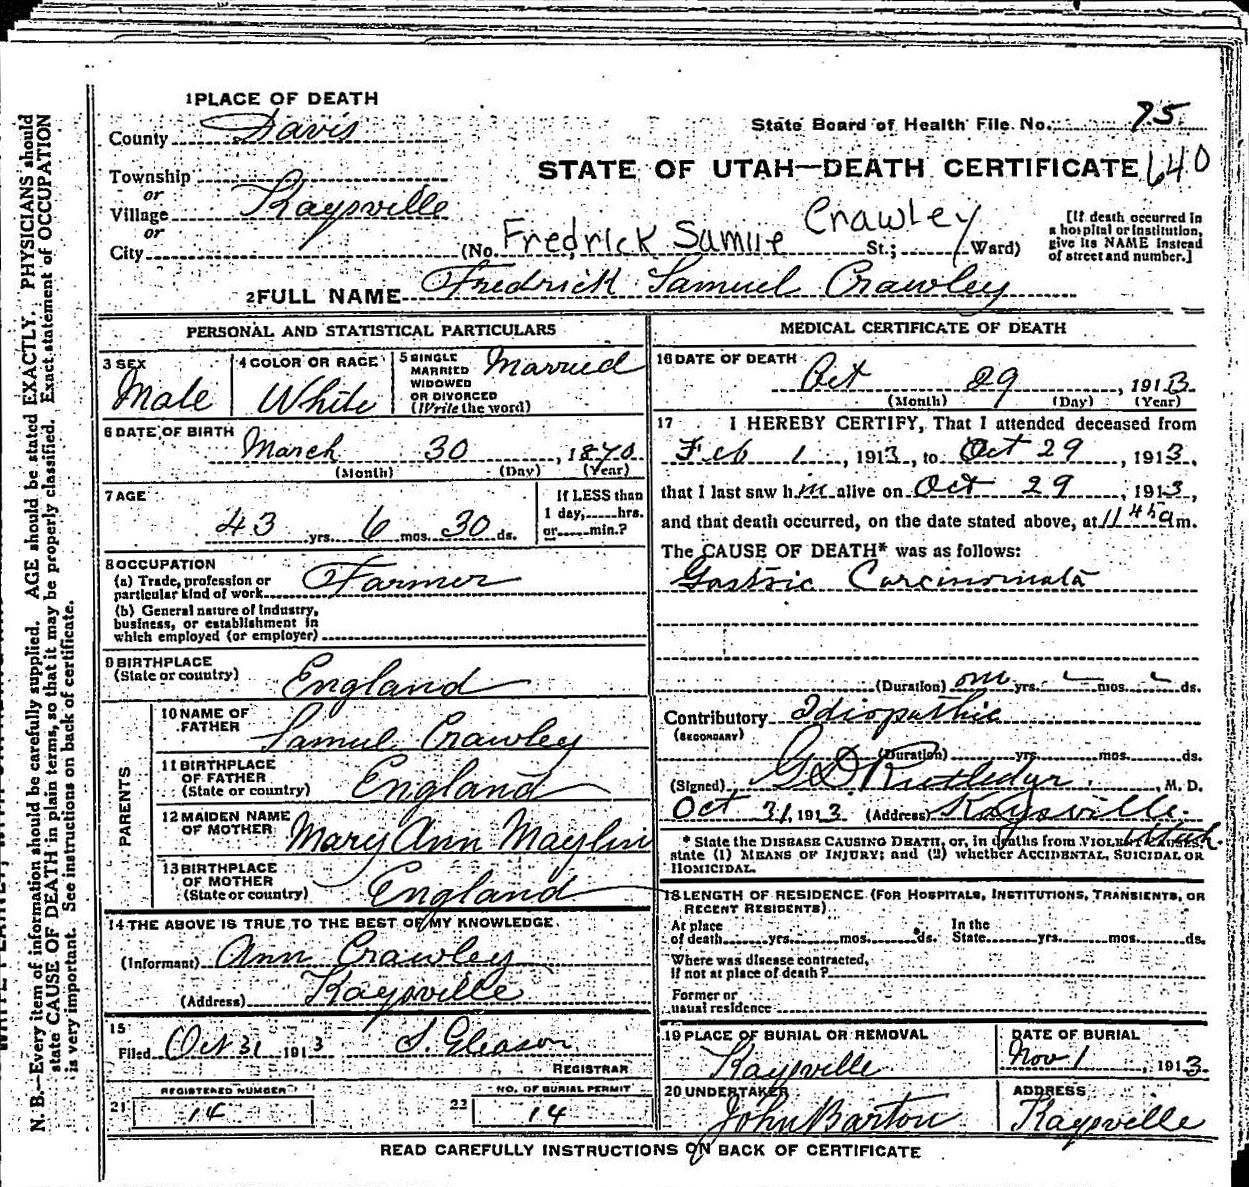 1 PLACE OF DEATH
County Davis
State Board of Health File No. 75.
Township
STATE OF UTAH—DEATH CERTIFICATE 640
or
Village Kaysville
or
City
(No. Fredrick Samue Crawley St.; Ward)
[If death occurred in
a hospital or institution,
give its NAME instead
of street and number.]
2 FULL NAME Fredrick Samuel Crawley
PERSONAL AND STATISTICAL PARTICULARS
3 SEX
Male
4 COLOR OR RACE
White
5 SINGLE
MARRIED
WIDOWED
OR DIVORCED
(Write the word)
Married
6 DATE OF BIRTH
March 30, 1870.
(Month) (Day) (Year)
7 AGE
43 yrs. 6 mos. 30 ds.
If LESS than
1 day, hrs.
or min.?
8 OCCUPATION
(a) Trade, profession or
particular kind of work Farmer
(b) General nature of Industry,
business, or establishment in
which employed (or employer)
9 BIRTHPLACE
(State or country)
England
PARENTS
10 NAME OF
FATHER
Samuel Crawley
11 BIRTHPLACE
OF FATHER
(State or country)
England
12 MAIDEN NAME
OF MOTHER
Mary Ann Maylin
13 BIRTHPLACE
OF MOTHER
(State or country)
England
14 THE ABOVE IS TRUE TO THE BEST OF MY KNOWLEDGE
(Informant) Ann Crawley
(Address) Kaysville
15
Filed Oct 31 1913 S. Gleason
REGISTRAR
REGISTERED NUMBER
21 14
NO. OF BURIAL PERMIT
22 14
MEDICAL CERTIFICATE OF DEATH
16 DATE OF DEATH
Oct 29, 1913
(Month) (Day) (Year)
17 I HEREBY CERTIFY, That I attended deceased from
Feb 1, 1913, to Oct 29, 1913,
that I last saw him alive on Oct 29, 1913,
and that death occurred, on the date stated above, at 11 45 a m.
The CAUSE OF DEATH* was as follows:
Gastric Carcinomata
(Duration) one yrs. mos. ds.
Contributory Idiopathic
(SECONDARY)
(Duration) yrs. mos. ds.
(Signed) G D Rutledge, M. D.
Oct 31, 1913 (Address) Kaysville Utah.
* State the DISEASE CAUSING DEATH, or, in deaths from VIOLENT CAUSES,
state (1) MEANS OF INJURY; and (2) whether ACCIDENTAL, SUICIDAL OR
HOMICIDAL.
18 LENGTH OF RESIDENCE (FOR HOSPITALS, INSTITUTIONS, TRANSIENTS, OR
RECENT RESIDENTS)
At place
of death yrs. mos. ds.
In the
State yrs. mos. ds.
Where was disease contracted,
If not at place of death?
Former or
usual residence
19 PLACE OF BURIAL OR REMOVAL
Kaysville
DATE OF BURIAL
Nov 1, 1913.
20 UNDERTAKER
John Barton
ADDRESS
Kaysville
READ CAREFULLY INSTRUCTIONS ON BACK OF CERTIFICATE
N. B.—Every item of information should be carefully supplied. AGE should be stated EXACTLY. PHYSICIANS should
state CAUSE OF DEATH in plain terms, so that it may be properly classified. Exact statement of OCCUPATION
is very important. See instructions on back of certificate.